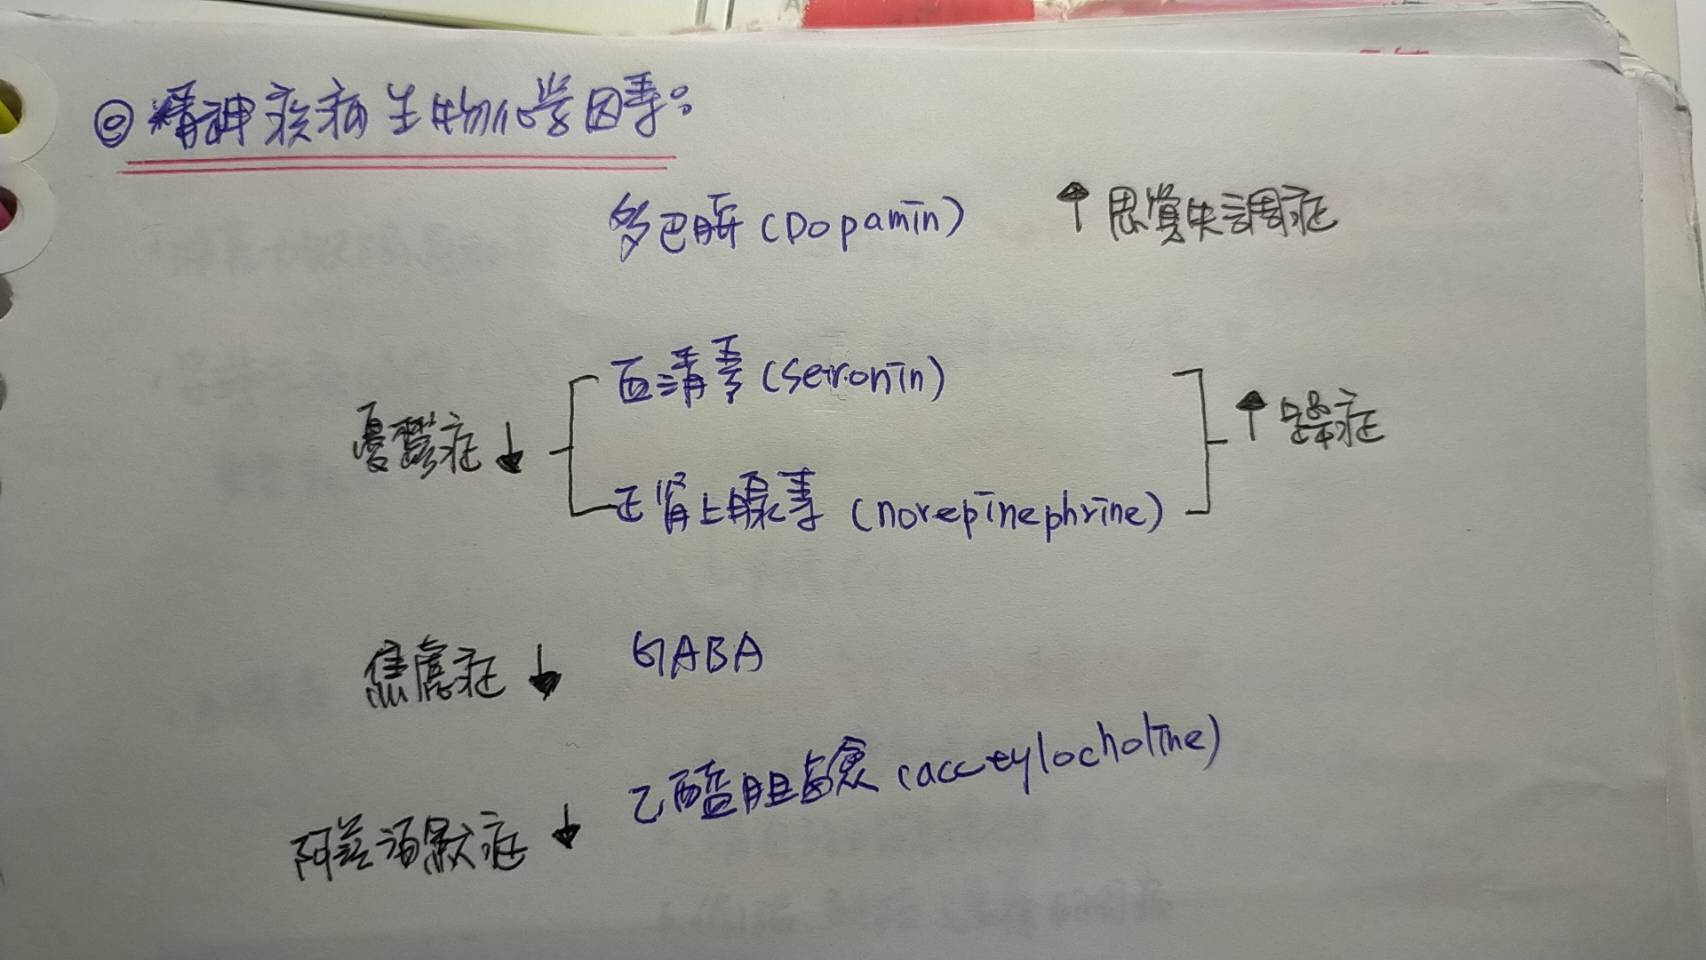 ◎ 精神疾病生物化學因素：
多巴胺 (Dopamin) ↑ 思覺失調症
血清素 (seironin)
憂鬱症 ↓ ↑ 躁症
正腎上腺素 (norepinephrine)
焦慮症 ↓ GABA
乙醯胆鹼 (accetylocholine)
阿茲海默症 ↓